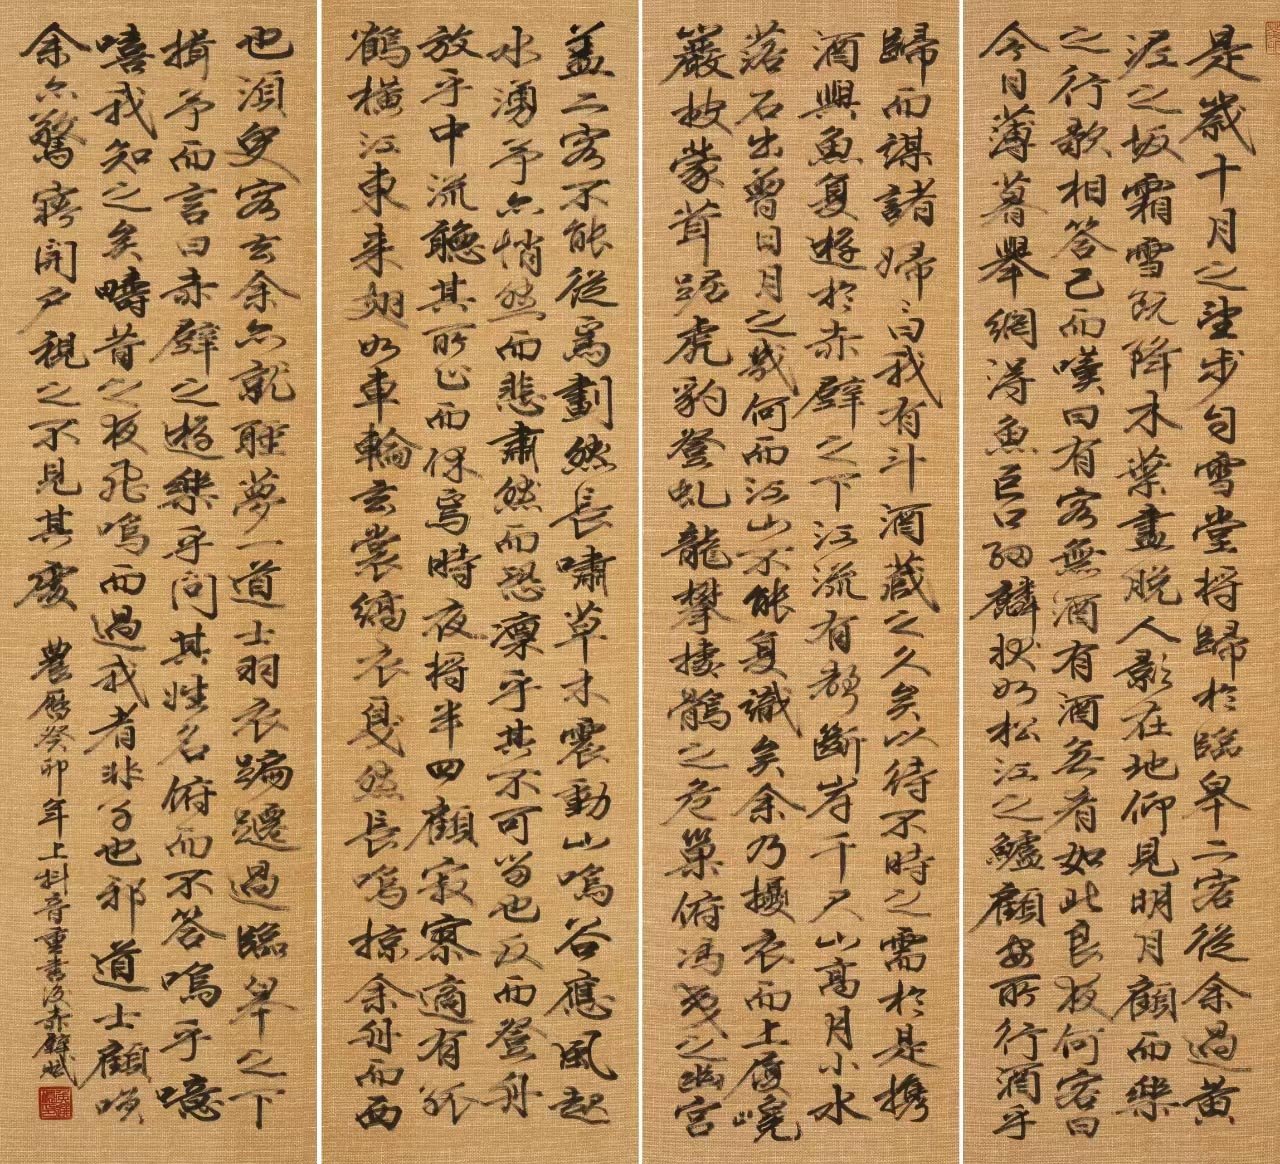 是歲十月之望步自雪堂將歸於臨皋二客從余過黃
泥之坂霜雪既降木葉盡脫人影在地仰見明月顧而樂
之行歌相答已而嘆曰有客無酒有酒無肴如此良夜何客曰
今日薄暮舉網得魚巨口細鱗狀如松江之鱸顧安所得酒乎
歸而謀諸婦婦曰我有斗酒藏之久矣以待不時之需於是攜
酒與魚復遊於赤壁之下江流有聲斷岸千尺山高月小水
落石出曾日月之幾何而江山不能復識矣余乃攝衣而上履巉
巖披蒙茸踞虎豹登虬龍攀棲鶻之危巢俯馮夷之幽宮
蓋二客不能從焉劃然長嘯草木震動山鳴谷應風起
水湧予亦悄然而悲肅然而恐凜乎其不可留也反而登舟
放乎中流聽其所止而休焉時夜將半四顧寂寥適有孤
鶴橫江東來翅如車輪玄裳縞衣戛然長鳴掠余舟而西
也須臾客去余亦就睡夢一道士羽衣蹁躚過臨皋之下
揖予而言曰赤壁之遊樂乎問其姓名俯而不答嗚乎噫
嘻我知之矣疇昔之夜飛鳴而過我者非子也邪道士顧笑
余亦驚寤開戶視之不見其處
農曆癸卯年上
書後赤壁賦